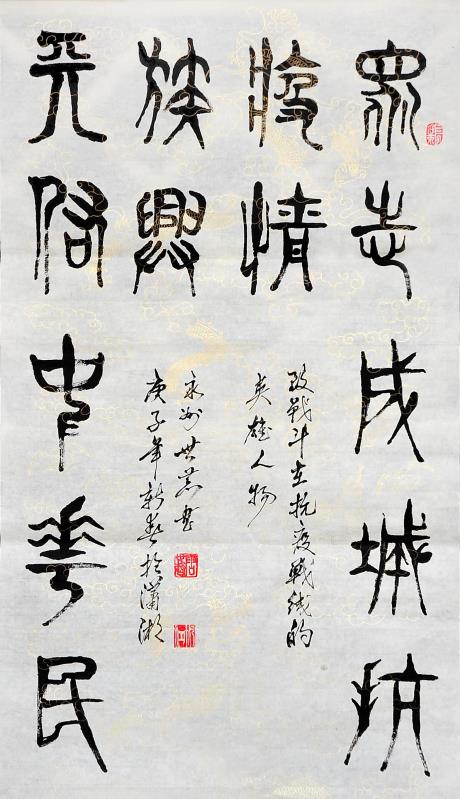 眾志成城抗
疫情
天佑中華民
族興
致戰斗在抗疫戰线的
英雄人物
永州世書
庚子年新春於瀟湘